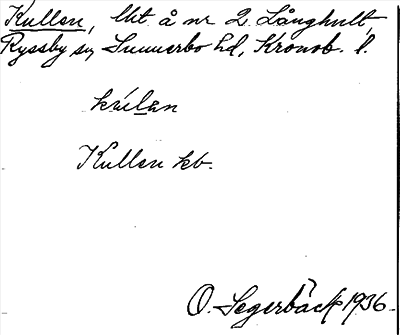 Kullen, lht å nr 2 Långhult,
Ryssby sn, Sunnerbo hd, Kronob. l.
kúlan
Kullen kb.
O. Segerbäck 1936